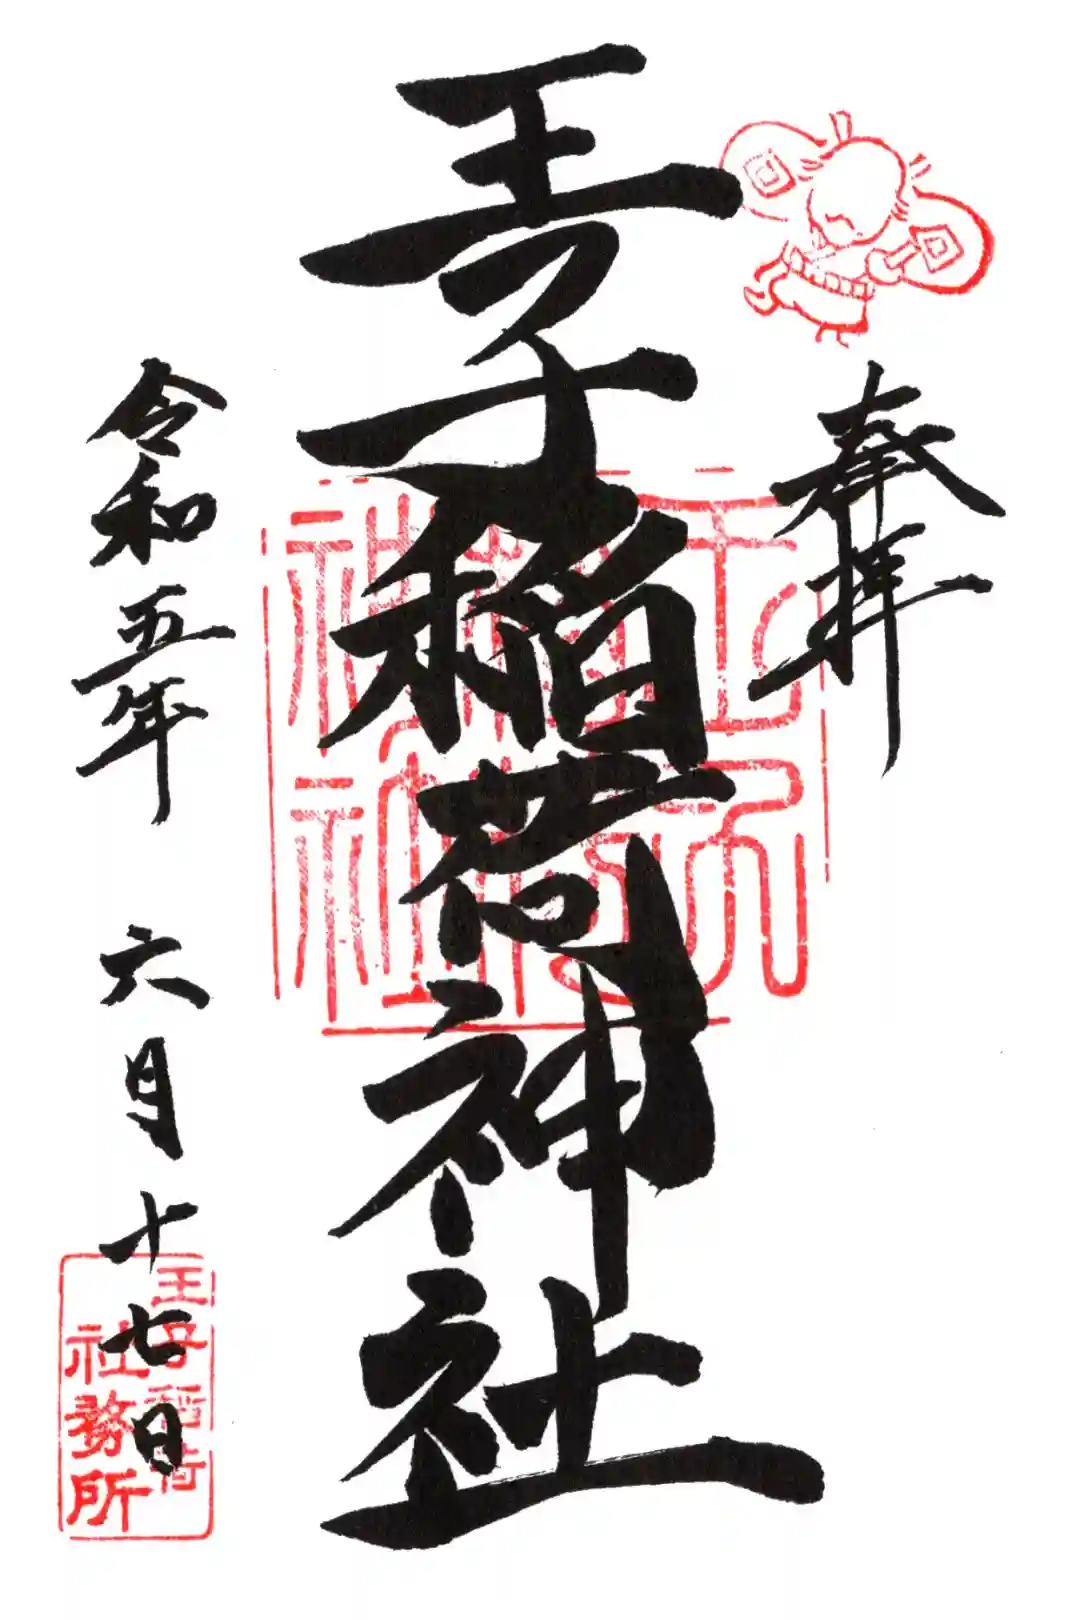 奉拝
王子稲荷神社
令和五年 六月十七日
王子稲荷
社務所